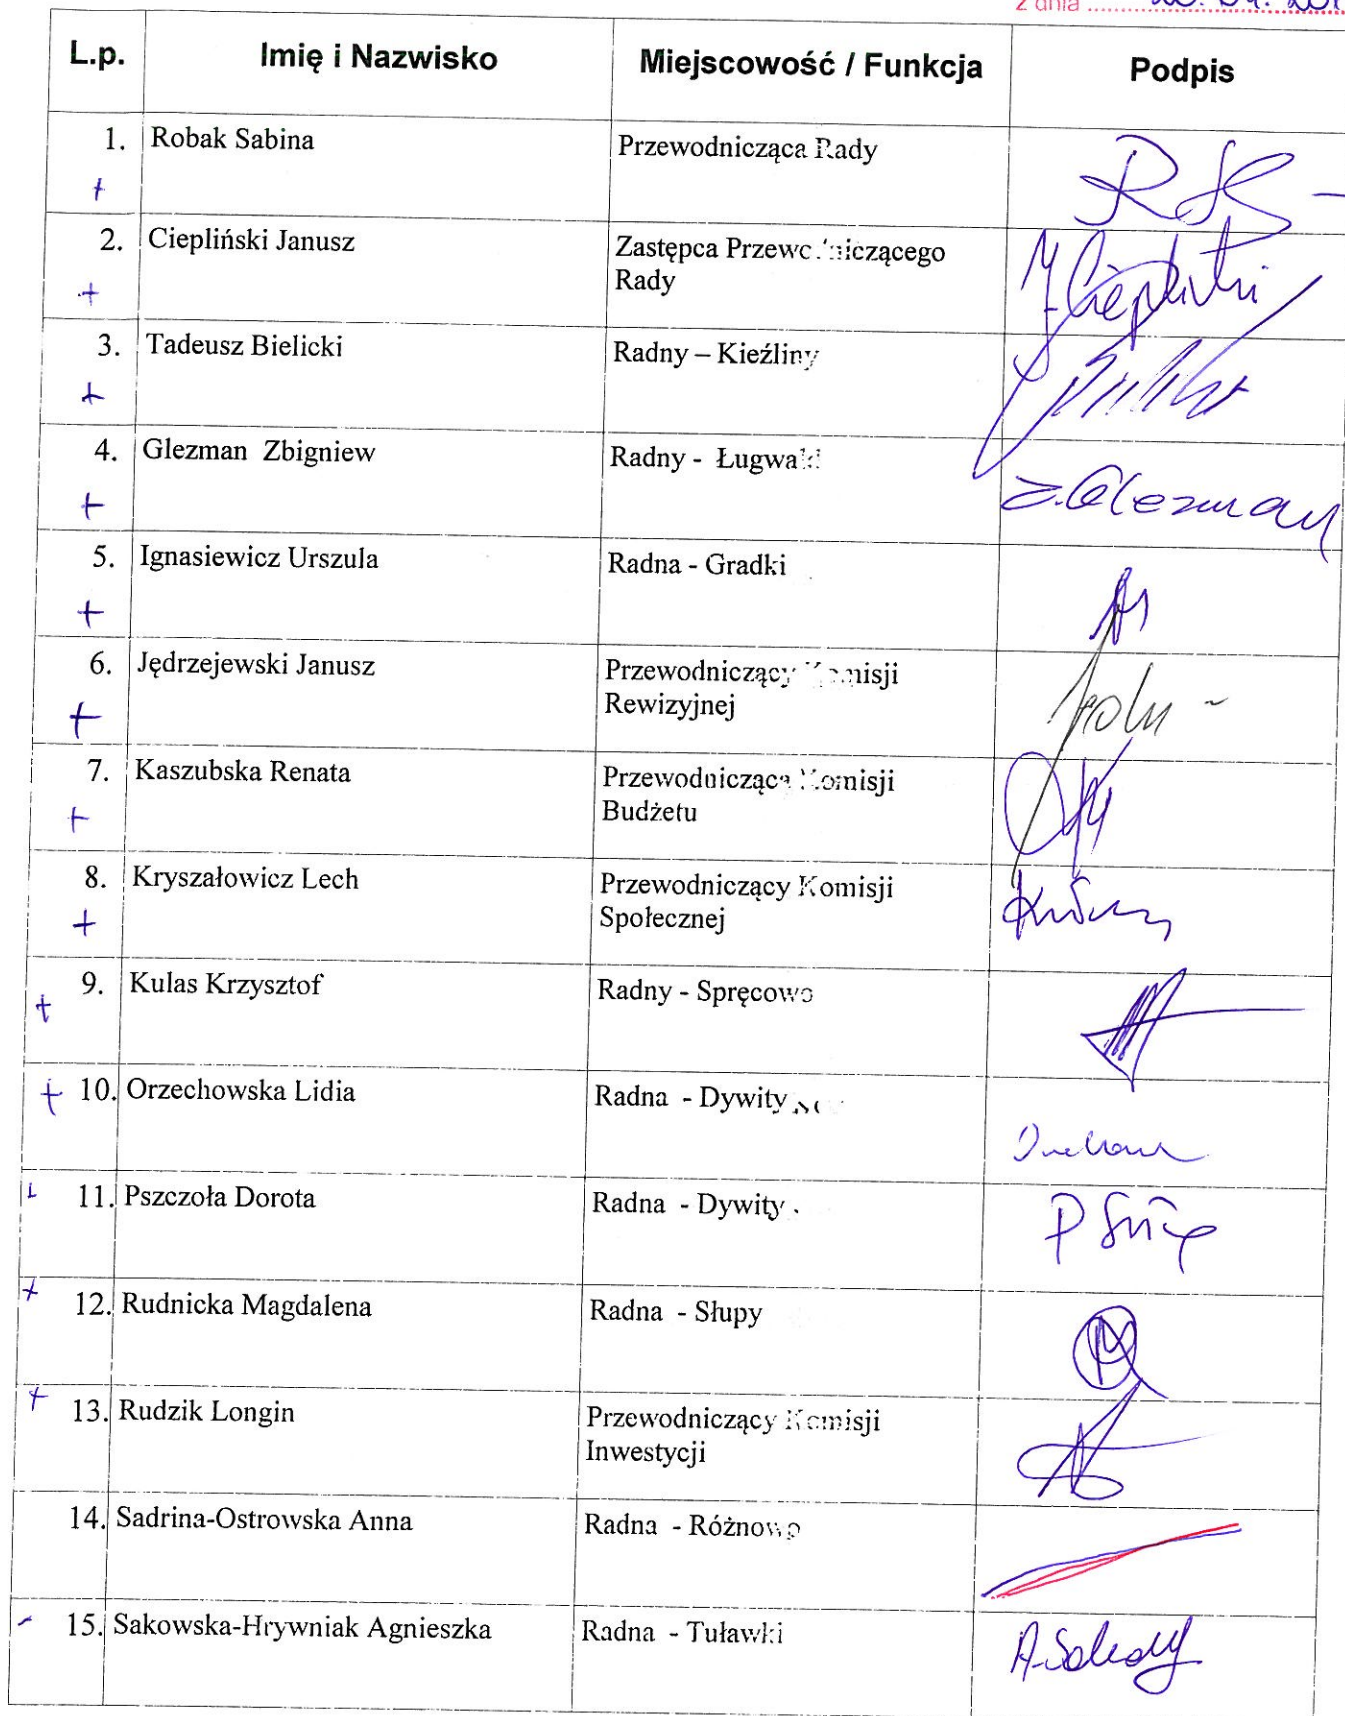 z dnia
L.p. Imię i Nazwisko Miejscowość / Funkcja Podpis
1. Robak Sabina Przewodnicząca Rady
+
2. Ciepliński Janusz Zastępca Przewodniczącego
Rady
+
J. Ciepliński
3. Tadeusz Bielicki Radny – Kieźliny
+
4. Glezman Zbigniew Radny - Ługwałd
+
Z. Glezman
5. Ignasiewicz Urszula Radna - Gradki
+
6. Jędrzejewski Janusz Przewodniczący Komisji
Rewizyjnej
+
7. Kaszubska Renata Przewodnicząca Komisji
Budżetu
+
8. Kryszałowicz Lech Przewodniczący Komisji
Społecznej
+
9. Kulas Krzysztof Radny - Spręcowo
+
+ 10. Orzechowska Lidia Radna - Dywity
11. Pszczoła Dorota Radna - Dywity
+ 12. Rudnicka Magdalena Radna - Słupy
+ 13. Rudzik Longin Przewodniczący Komisji
Inwestycji
14. Sadrina-Ostrowska Anna Radna - Różnowo
- 15. Sakowska-Hrywniak Agnieszka Radna - Tuławki